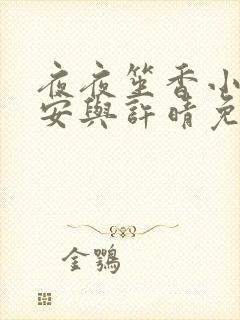 夜夜笙香小
安與許晴免
金鶚